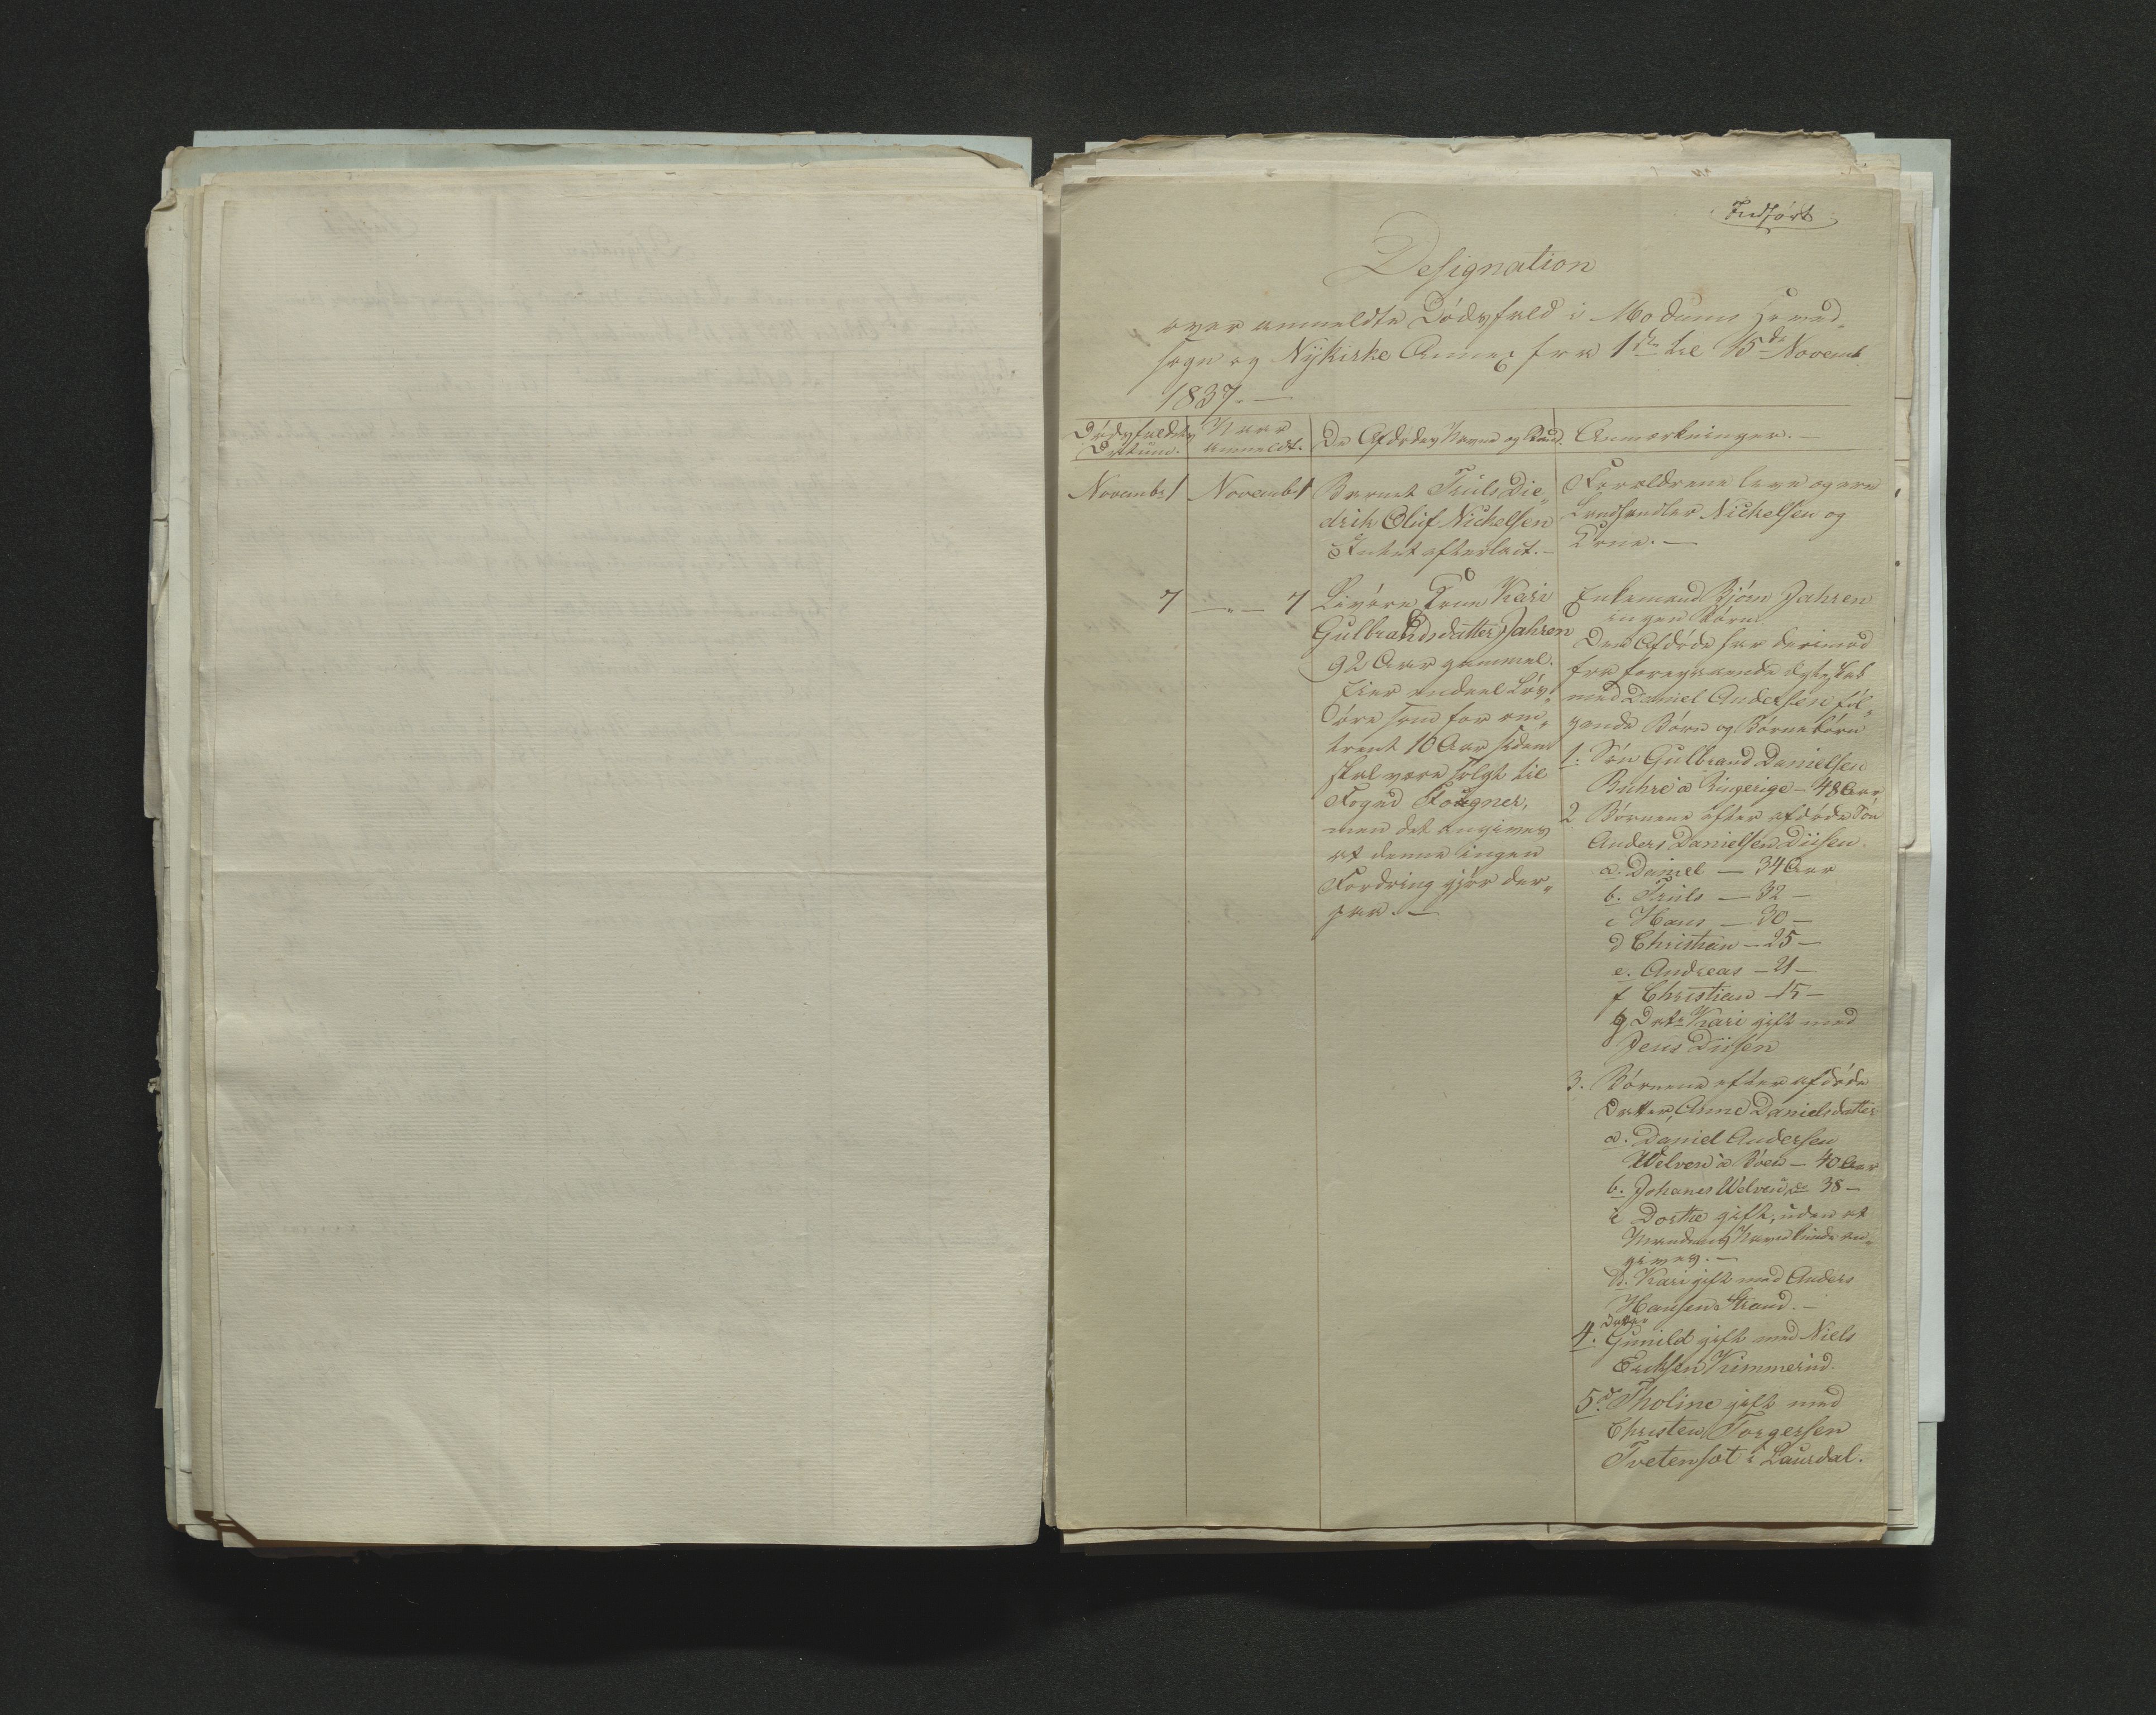 Indført
Designation
over anmeldte Dødsfald i Modums Hoved-
sogn og Nykirke Annex fra 1ste til 15de Novemb.
1837. —
Dødsfaldets Datum.
Naar anmeldt.
De Afdødes Navne og Stand.
Anmærkninger. —
Novembr 1
Novembr 1
Barnet Truls Die-
drik Oluf Nickelsen
Intet efterladt. —
Forældrene leve og ere
Landhandler Nickelsen og
Kone. —
7
—"— 7
Kone Kari
Gulbrandsdatter Jahren
92 Aar gammel.
Eier endeel Løs-
øre som for om-
trent 10 Aar siden
skal være solgt til
Foged Fougner,
men det angives
at denne ingen
Fordring gjør der-
paa. —
Enkemand Bjørn Jahren
ingen Børn.
Den Afdøde har derimod
fra foregaaende Ægteskab
med Daniel Andersen føl-
gende Børn og Børnebørn
1. Søn Gulbrand Danielsen
Buhre a Ringerige — 48 Aar
2 Børnene efter afdøde Søn
Anders Danielsen Diisen.
a. Daniel — 34 Aar
b. Truls — 32 —
c Hans — 30 —
d Christian — 25 —
e. Andreas — 21 —
f Christian — 15 —
g Datr Kari gift med
Jens Diisen
3. Børnene efter afdøde
Datter, Anne Danielsdatter
a. Daniel Andersen
Welven a — 40 Aar
b. Johanes Welven do 38 —
c Dorthe gift, uden at
Mandens Navn kunde an-
gives. —
d. Kari gift med Anders
Hansen Strand. —
4. Datter Gunild gift med Niels
Erichsen Kimmerud.
5. d Tholine gift med
Christen Torgersen
Tvetensøt i Laurdal.